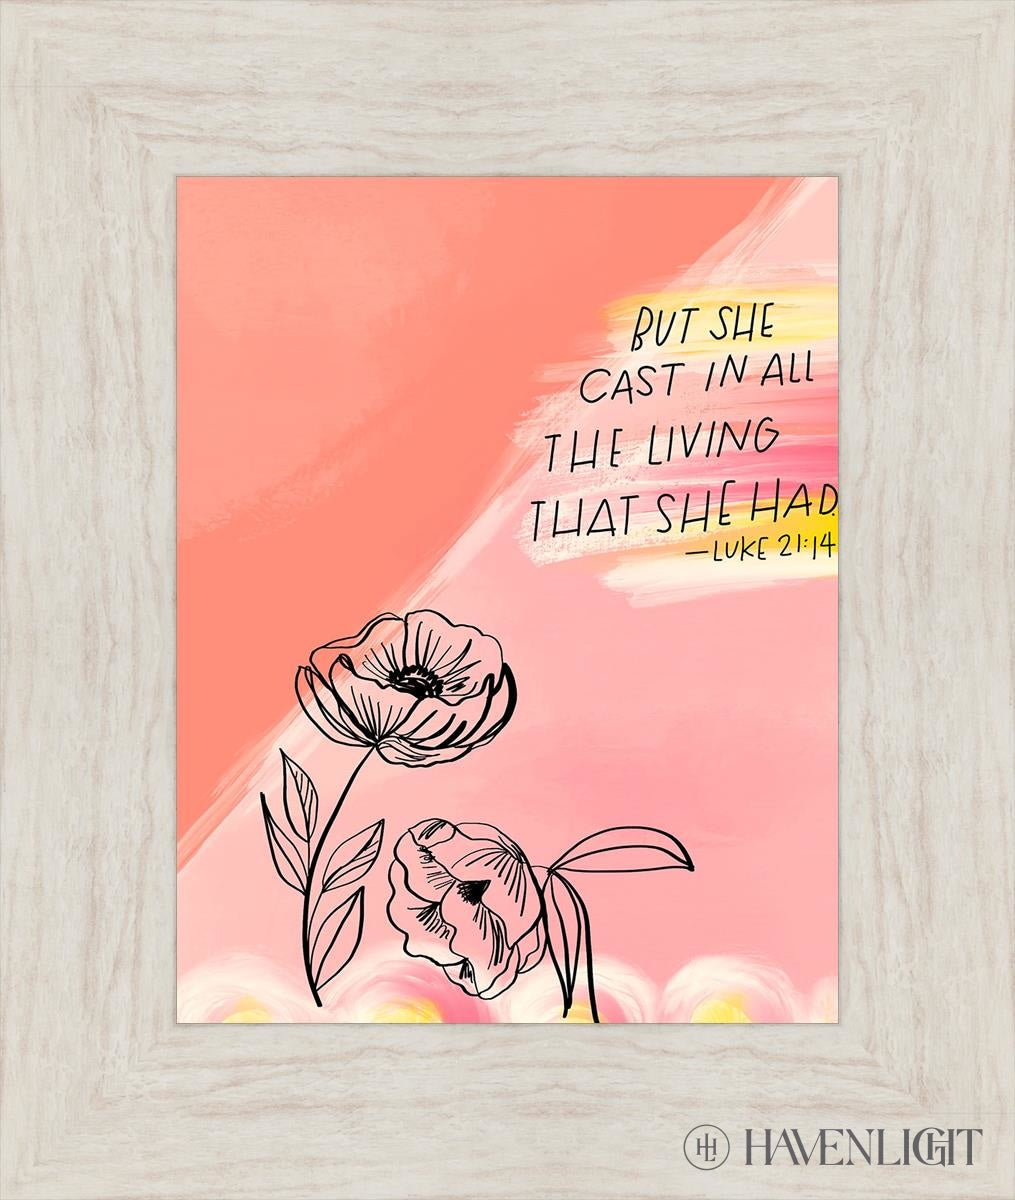 BUT SHE
CAST IN ALL
THE LIVING
THAT SHE HAD.
—LUKE 21:14
HL HAVENLIGHT